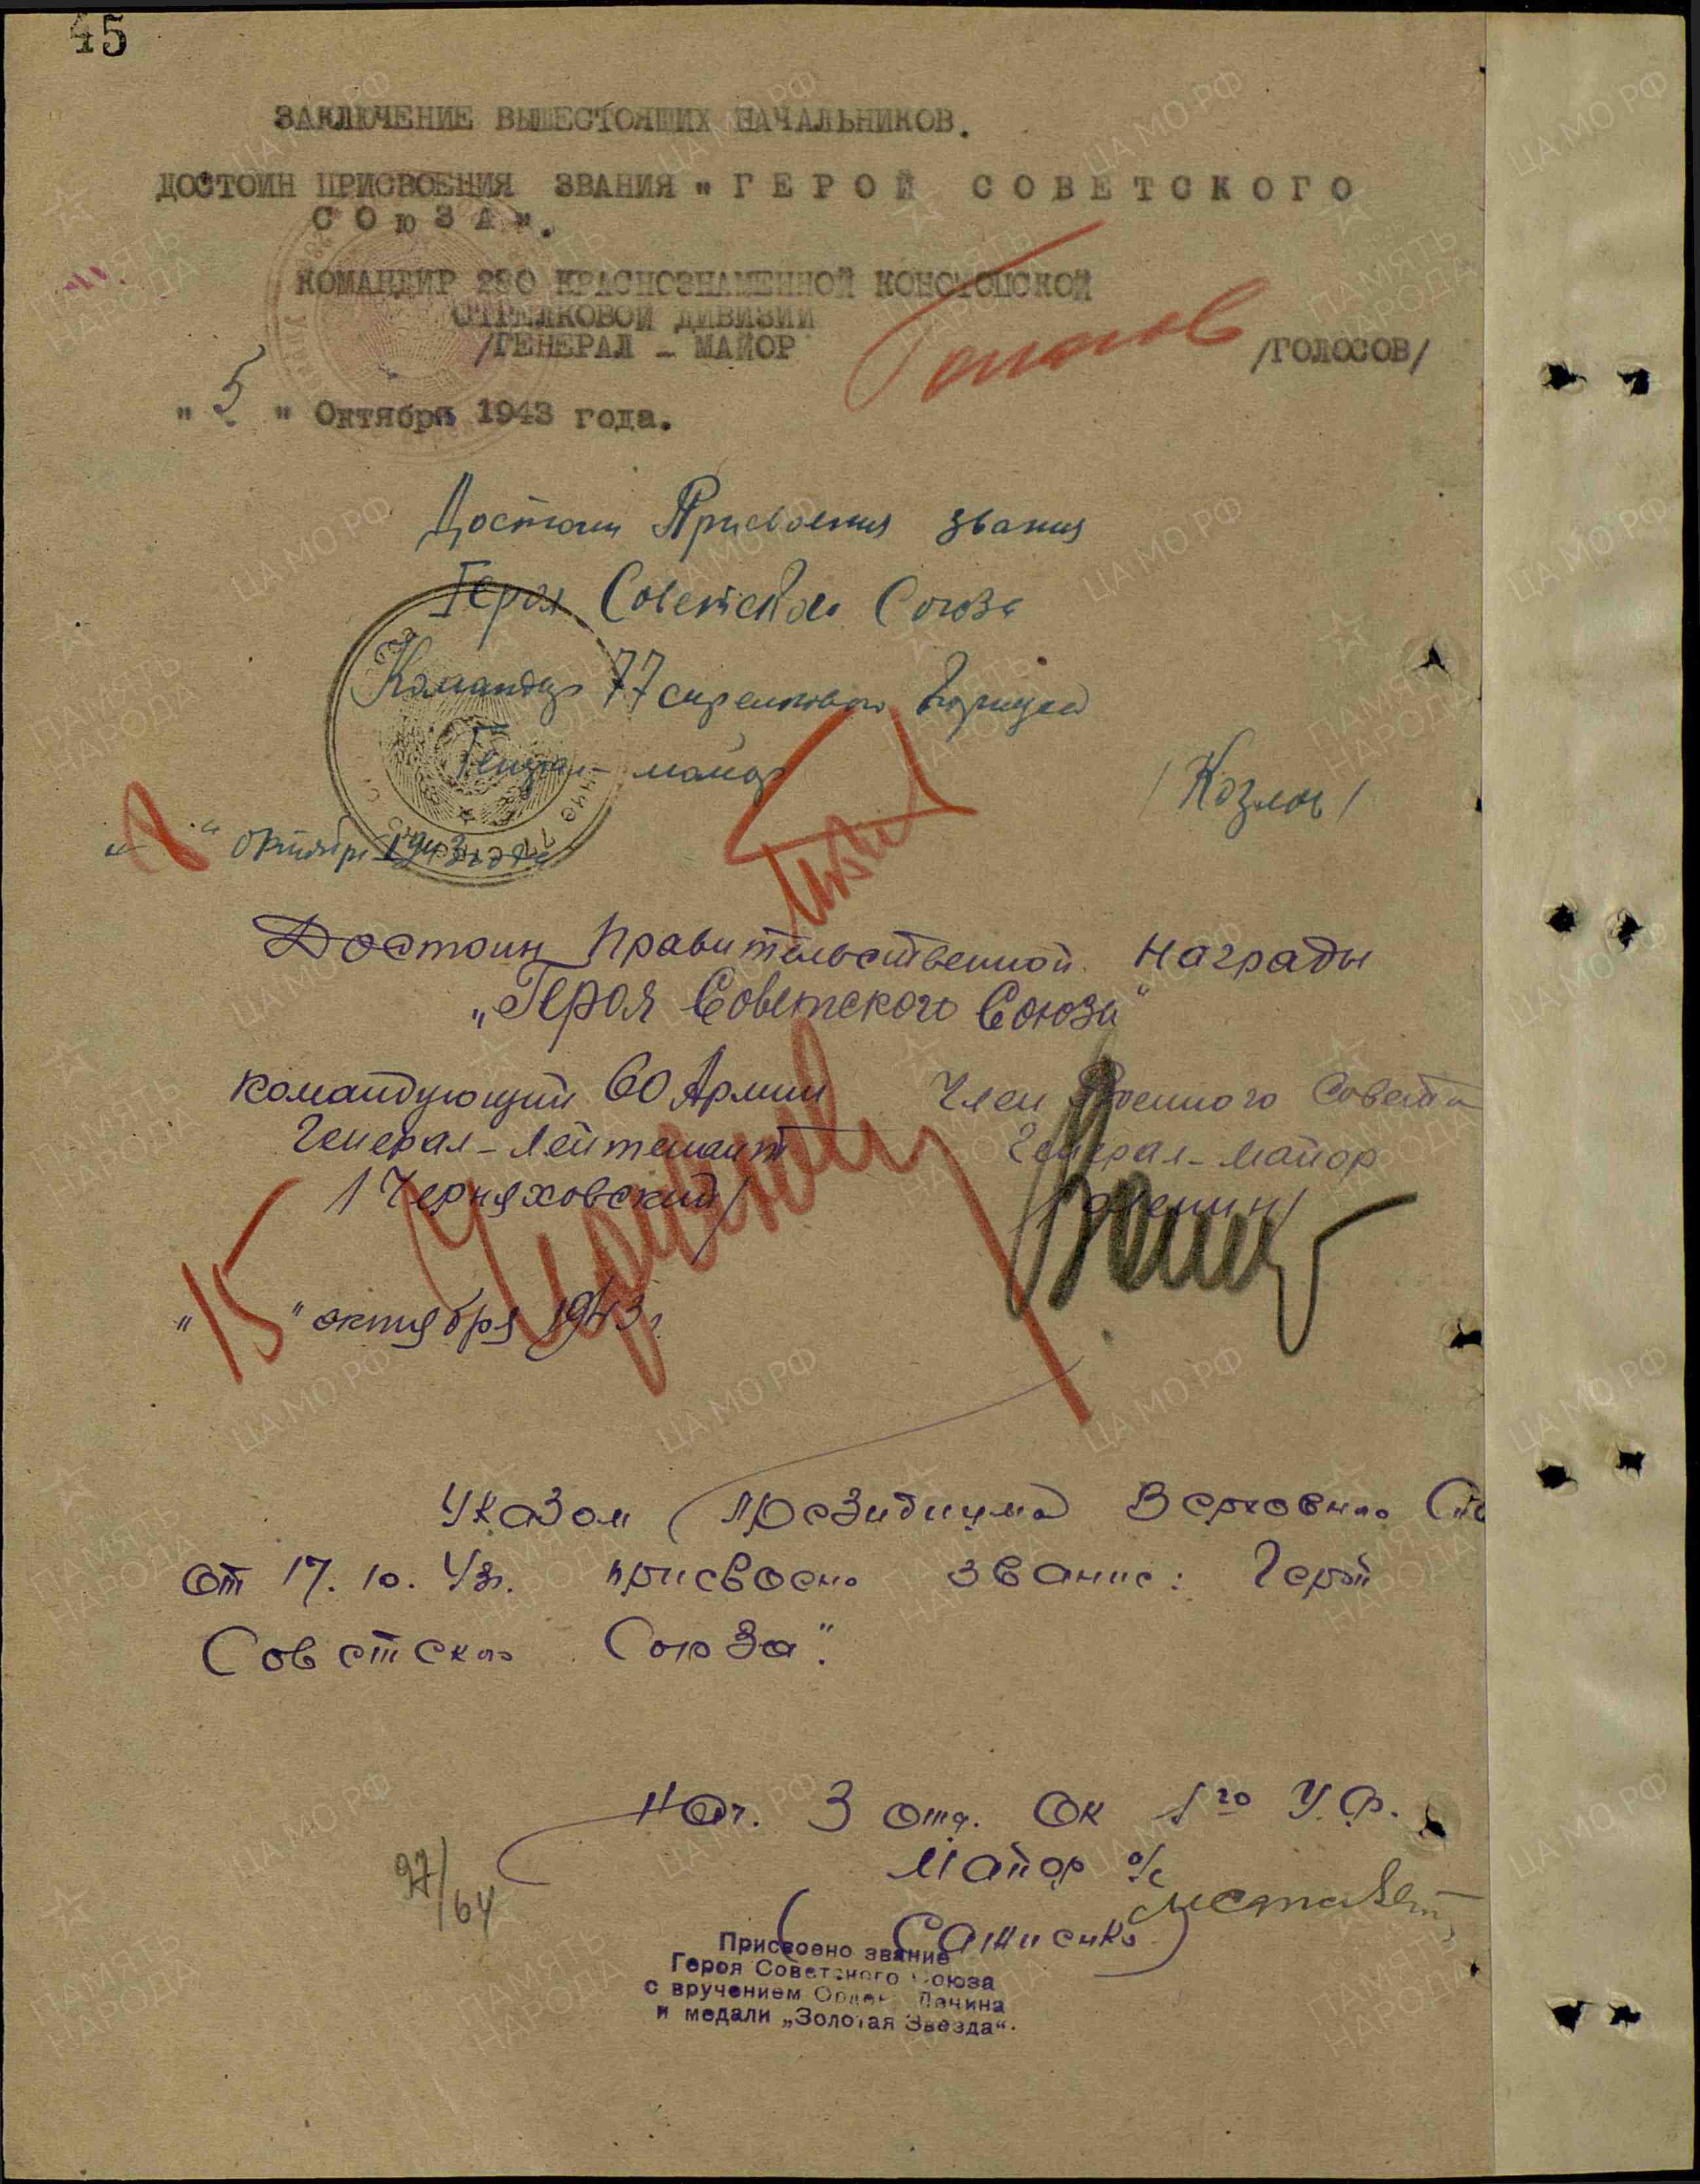 45
ЗАКЛЮЧЕНИЕ ВЫШЕСТОЯЩИХ НАЧАЛЬНИКОВ.
ДОСТОИН ПРИСВОЕНИЯ ЗВАНИЯ "ГЕРОЙ СОВЕТСКОГО
СОЮЗА".
КОМАНДИР 280 КРАСНОЗНАМЕННОЙ КОНОТОПСКОЙ
СТРЕЛКОВОЙ ДИВИЗИИ
/ГЕНЕРАЛ - МАЙОР /ГОЛОСОВ/
"5" Октября 1943 года.
Достоин Присвоения звания
Героя Советского Союза
Командир 77 стрелкового корпуса
Генерал-майор /Козлов/
"8" октября 1943 года
Достоин Правительственной награды
"Героя Советского Союза"
Командующий 60 Армии Член Военного Совета
Генерал-лейтенант Генерал-майор
/Черняховский/ /Оленин/
"15" октября 1943 г.
Указом Президиума Верховного
от 17.10.43г. присвоено звание: Герой
Советского Союза".
Нач. 3 отд. ОК 1го У.Ф.
Майор а/с
97/64
Присвоено звание
Героя Советского Союза
с вручением Ордена Ленина
и медали „Золотая Звезда“.
ЦА МО РФ
ПАМЯТЬ
НАРОДА